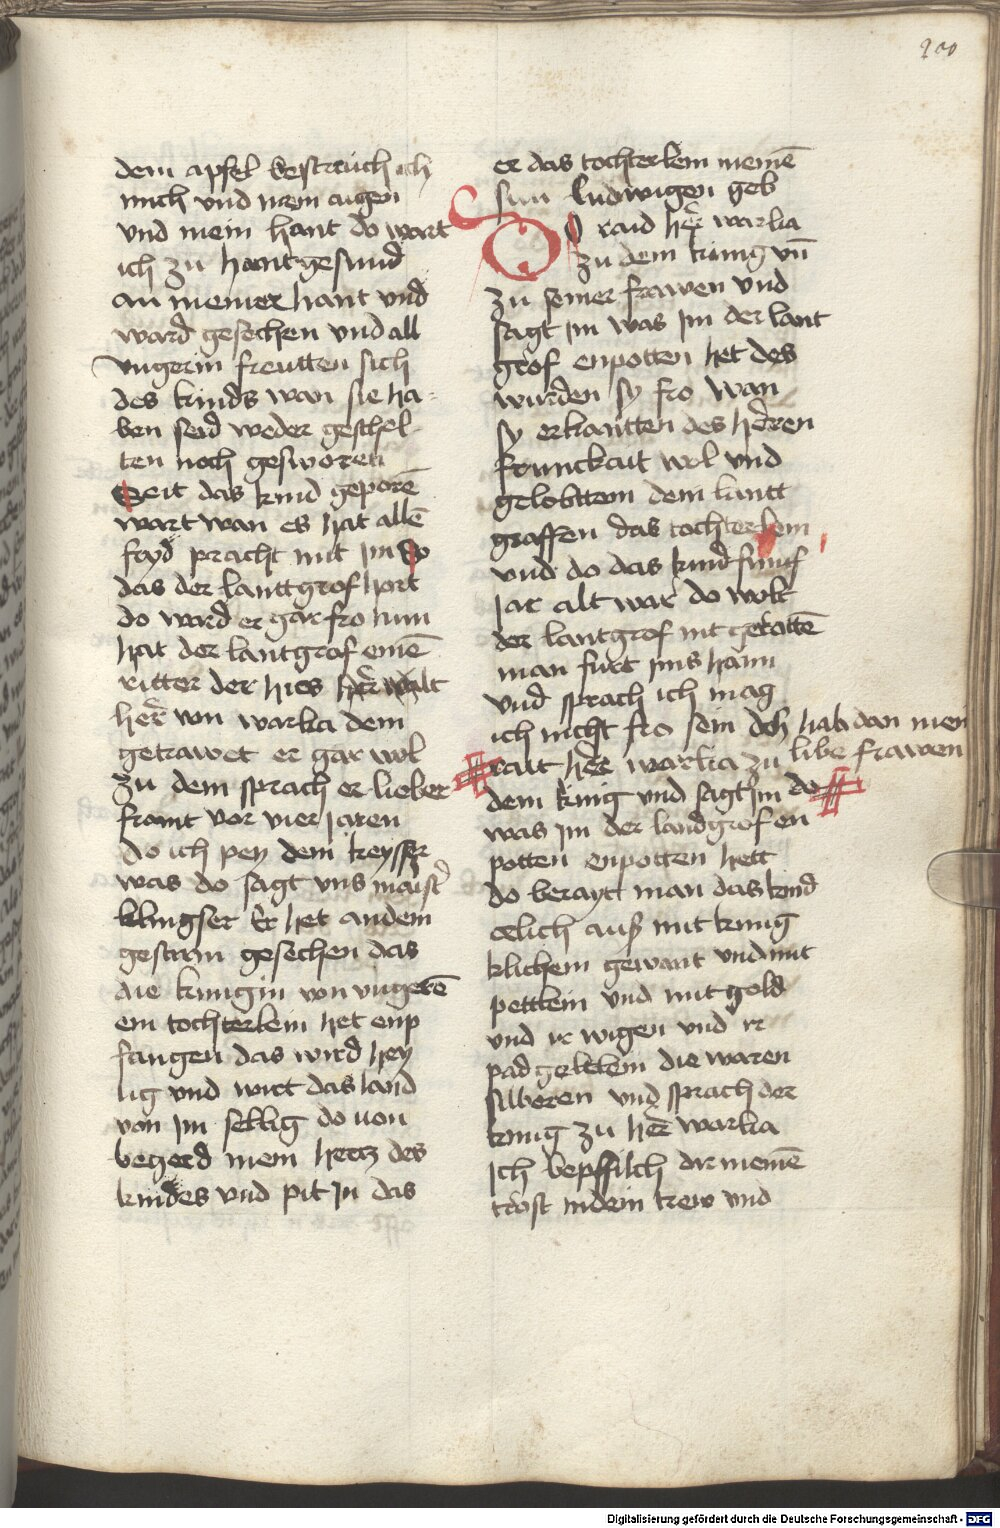 200
dem apfel bestraich ich
mich und mein augen
und mein hant do wart
ich zu hantgesund
an meiner hant und
ward gesechen und all
ungerin freutten sich
des kinds wan sie ha-
ben seid weder geschel-
ten noch gesworen
Seit das kind geporē
wart wan es hat allē
fryd pracht mit im Do
das der lanttgrof hort
do ward er gar fro nun
hat der lantgrof einē
ritter der hies her̄
her̄ von warka dem
getrawet er gar wol
zu dem sprach er lieber
framt vor vier jaren
do ich pey dem keysser
was do sagt uns maist̄
klingser Er het an dem
gestirn gesechen das
die kunigin von ungerē
ein tochterlein het enp
fangen das wird hey
lig und wirt das land
von im sellig do von
begerd mein hertz des
kindes und pit in das
er das tochterlein meinē
sun ludwigen geb
Do raid her̄ warka
zu dem kunig un̄
zu seiner frawen und
sagt im was im der lant
grof enpotten het des
wurden sy fro wan
sy erkantten des herren
frumckait wol und
gelobttem dem lantt
graffen das tochterlein
und do das kind funf
jar alt war do wolt
der lantgrof nit geratē
man furt ims haim
und sprach ich mag
ich nicht fro sein doh hab dan mein
libe frawen
rait her̄ warka zu
dem kinig und sagt im do
was im der landgrof en
potten enpotten hett
do berayt man das kind
celich auß mit kunig
klichem gewant und mit
pettlein und mit gold
und ir wigen und ir
padgeltlein die waren
silberen und sprach der
kunig zu her̄ warka
Ich bepffilch dir meinē
trost in dein trew und
Digitalisierung gefördert durch die Deutsche Forschungsgemeinschaft - DFG